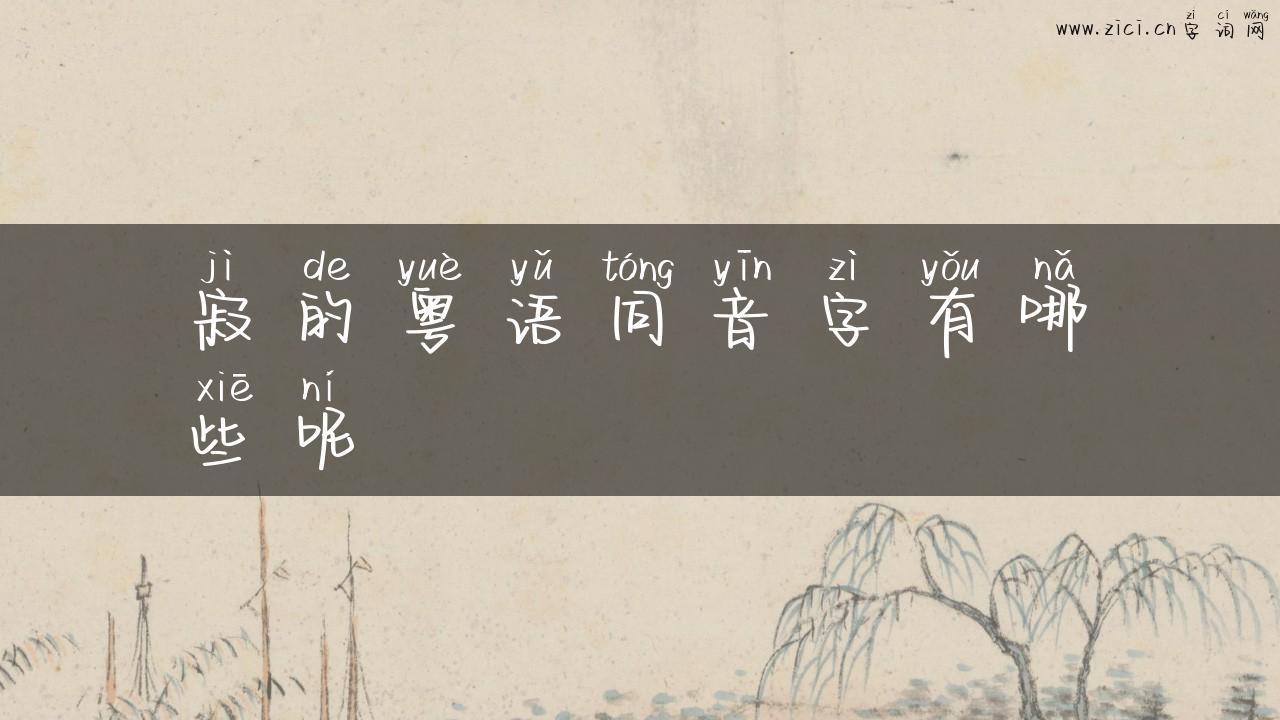 zì cí wǎng
www.zici.cn 字词网
jì de yuè yǔ tóng yīn zì yǒu nǎ
寂的粤语同音字有哪
xiē ní
些呢